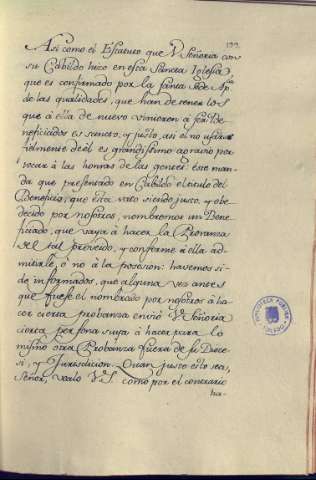 199.
Asi como el Estatuto que V Señoria con
su Cabildo hizo en esta Sancta Iglesia,
que es confirmado por la Santa Sede Ap.
de las qualidades, que han de tener los
que à ella de nuevo vinieron à ser Be-
neficiados es sancto, y justo, asi el no usar
fielmente de èl es grandissimo agravio por
tocar à las honras de las gentes: este man-
da que presentado en Cabildo el titulo del
Beneficio, que esta vaco siendo justo, y obe-
decido por nosotros, nombremos un Bene-
ficiado, que vaya à hacer la Provanza
del tal proveido, y conforme à ella ad-
mitirle, ò no à la posesion: havemos si-
do informados, que alguna vez antes
que fuese el nombrado por nosotros à ha-
cer cierta probanza envió V. Señoria
cierta persona suya à hacer para lo
mismo otra Probanza fuera de su Dioce-
si, y Jurisdiccion. Quan justo esto sea,
Señor, vealo V.S. como por el contrario
ha-
BIBLIOTECA PUBLICA
TOLEDO